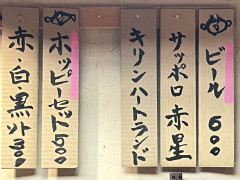 ビール 600
サッポロ赤星
キリンハートランド
ホッピーセット500
赤・白・黒 ソト300